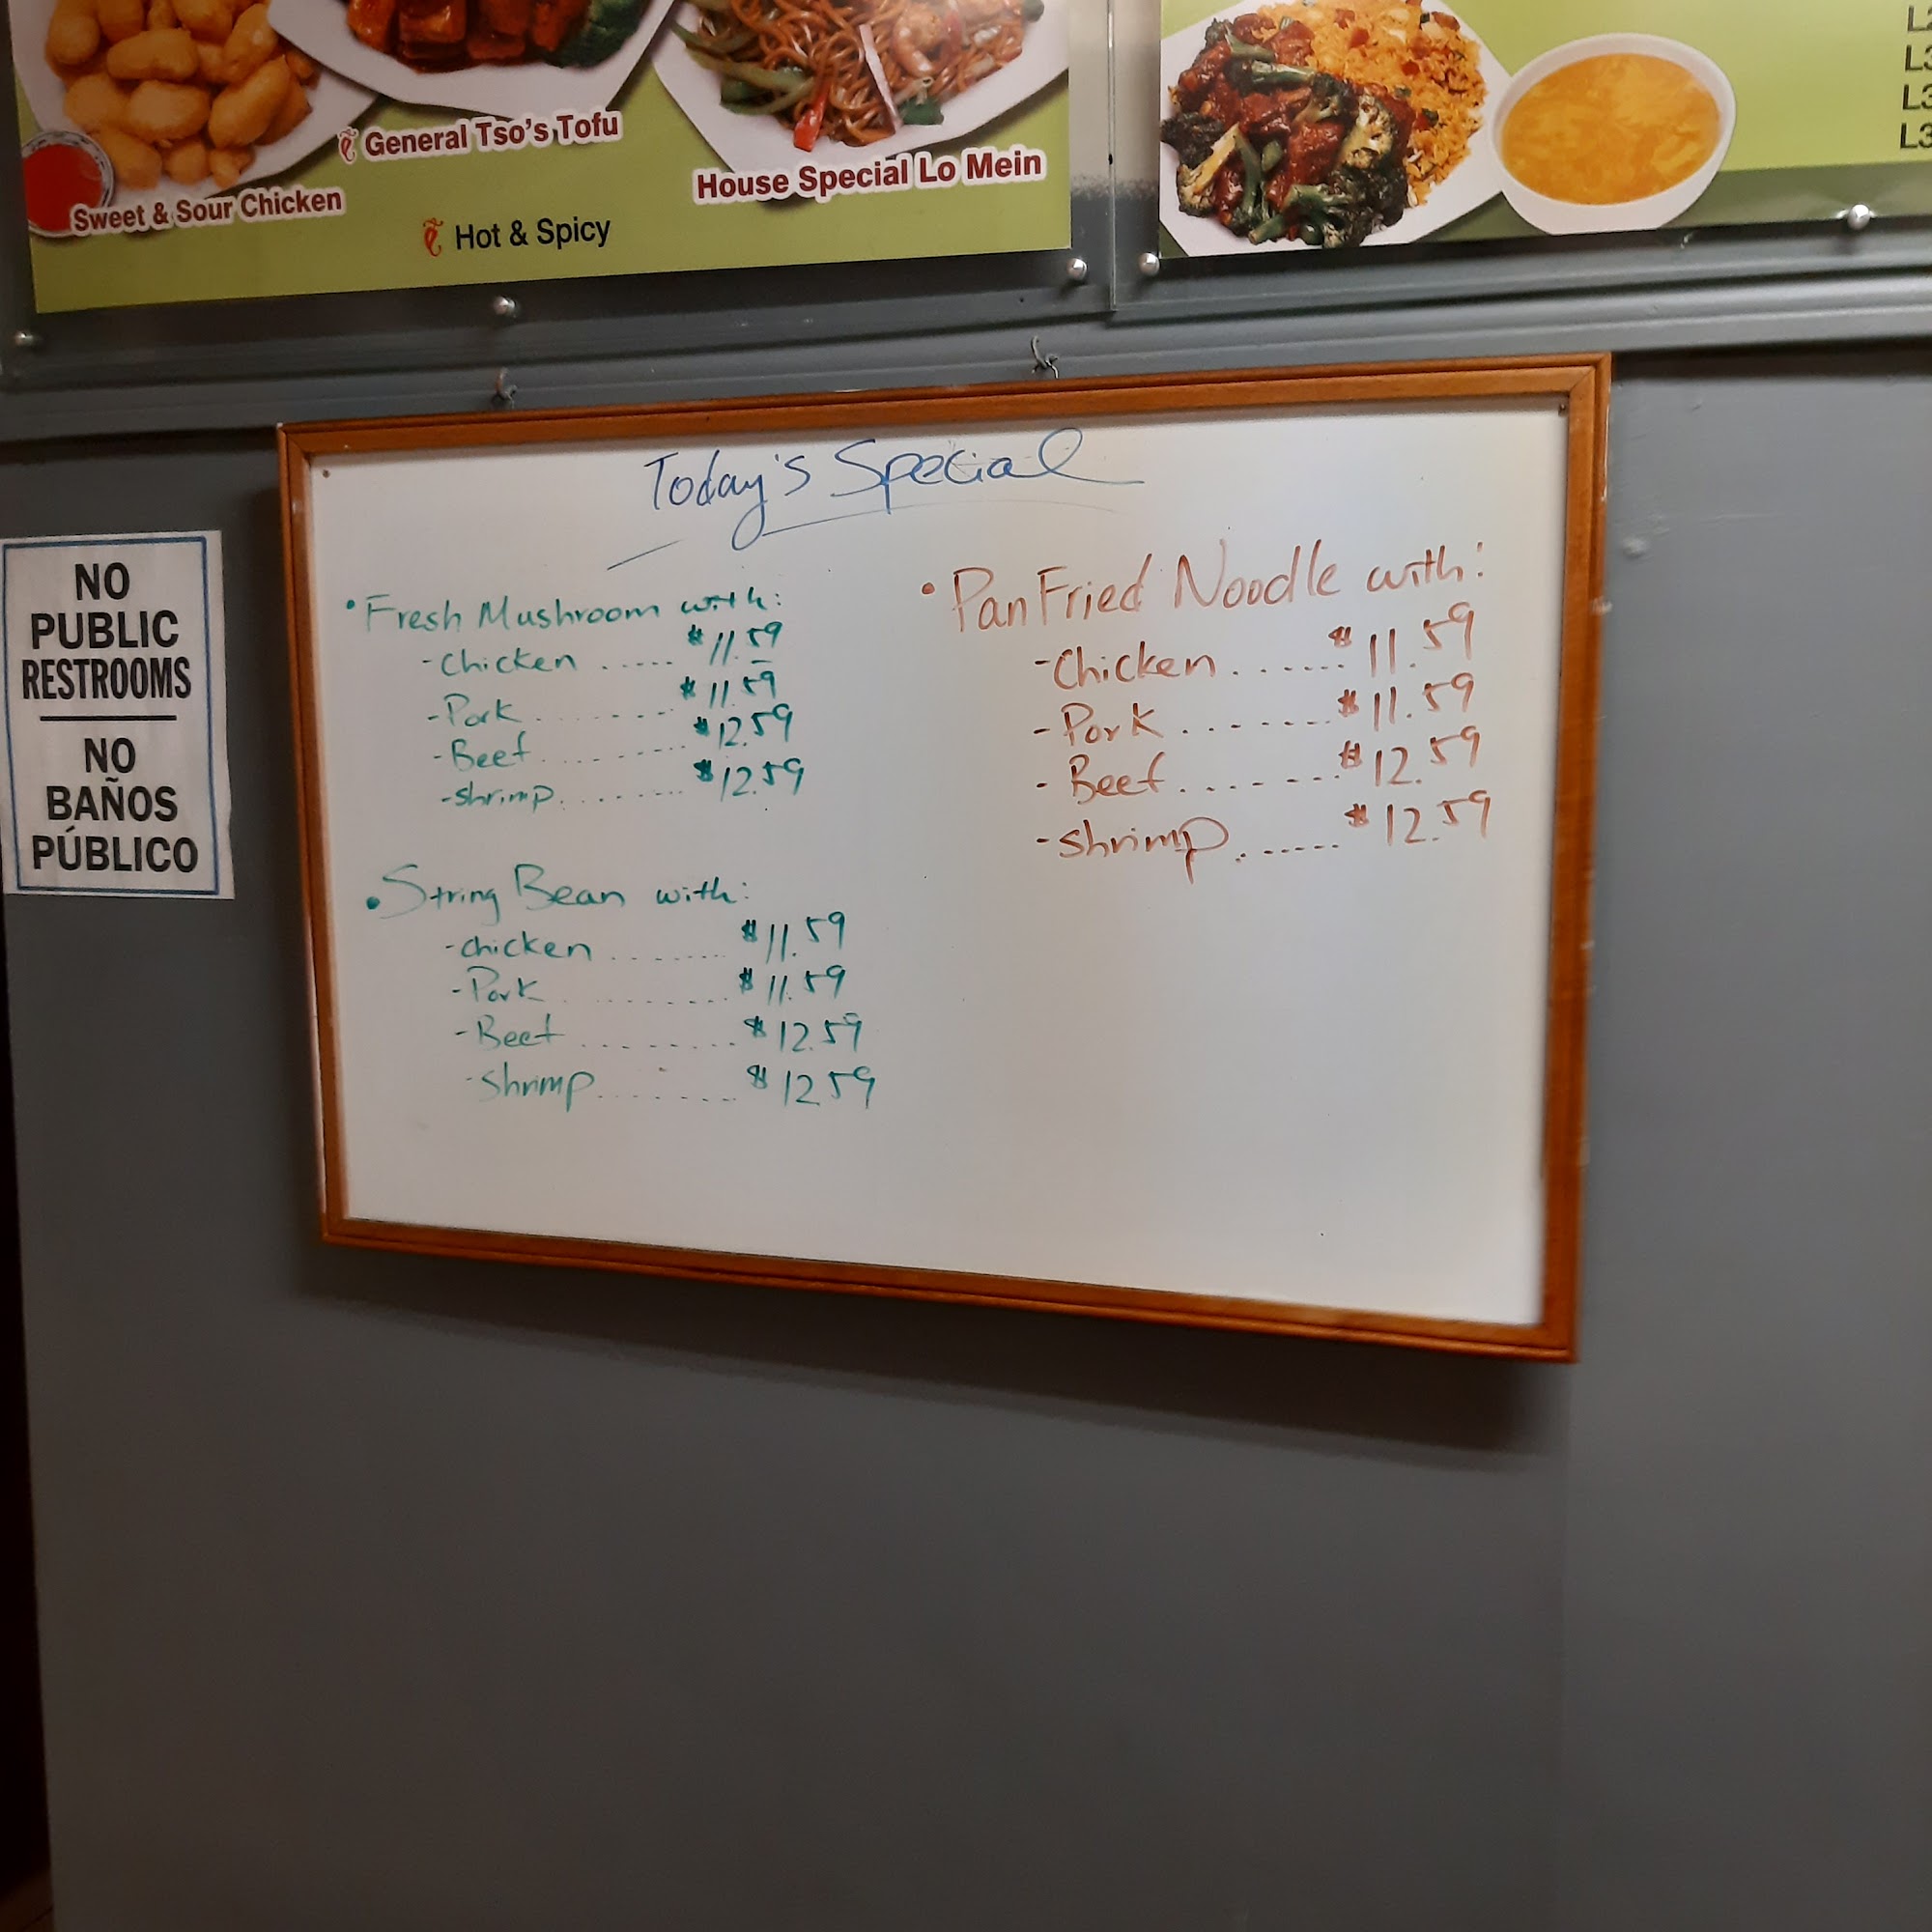 General Tso's Tofu
House Special Lo Mein
Sweet & Sour Chicken
Hot & Spicy
Today's Special
NO
PUBLIC
RESTROOMS
NO
BAÑOS
PÚBLICO
• Fresh Mushroom with:
-Chicken ..... $11.59
-Pork ........ $11.59
-Beef ........ $12.59
-shrimp ........ $12.59
• String Bean with:
-chicken ........ $11.59
-Pork ......... $11.59
-Beef ......... $12.59
-Shrimp ........ $12.59
• Pan Fried Noodle with:
-Chicken ....... $11.59
-Pork ........ $11.59
-Beef ........ $12.59
-shrimp ...... $12.59